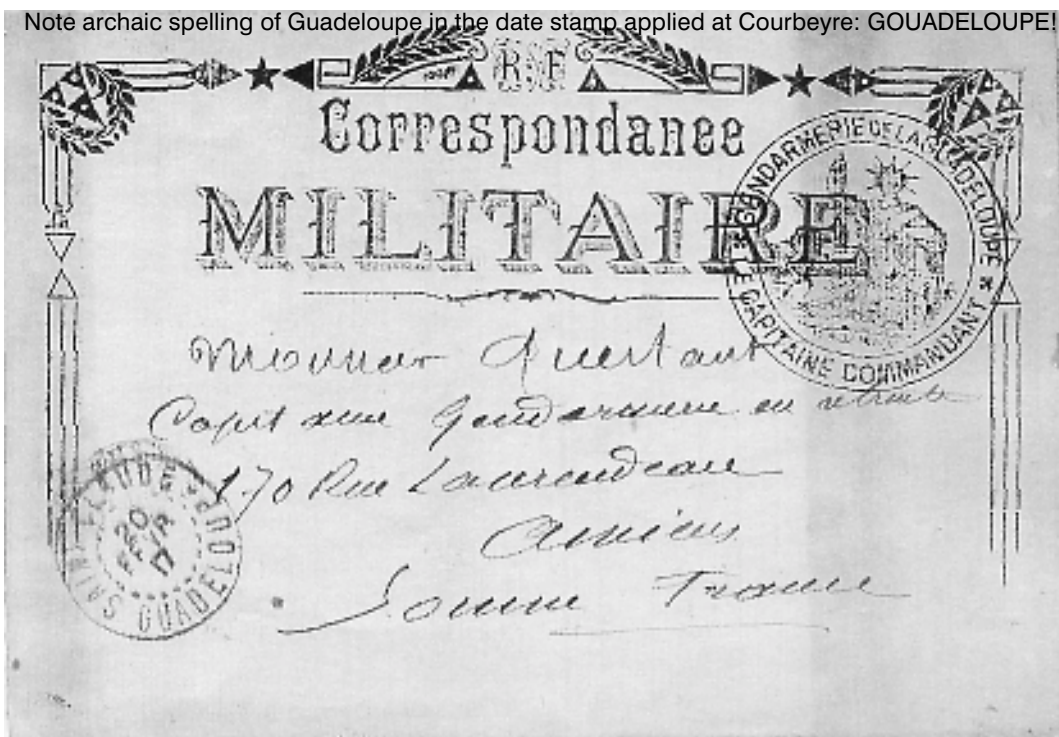 Note archaic spelling of Guadeloupe in the date stamp applied at Courbeyre: GOUADELOUPE!
R F
Correspondance
MILITAIRE
GENDARMERIE DE LA GUADELOUPE
LE CAPITAINE COMMANDANT
Monsieur
Capitaine Gendarmerie en retraite
170 Rue Laurendeau
Amiens
Somme France
SAINT CLAUDE
20
FEVR
17
GUADELOUPE